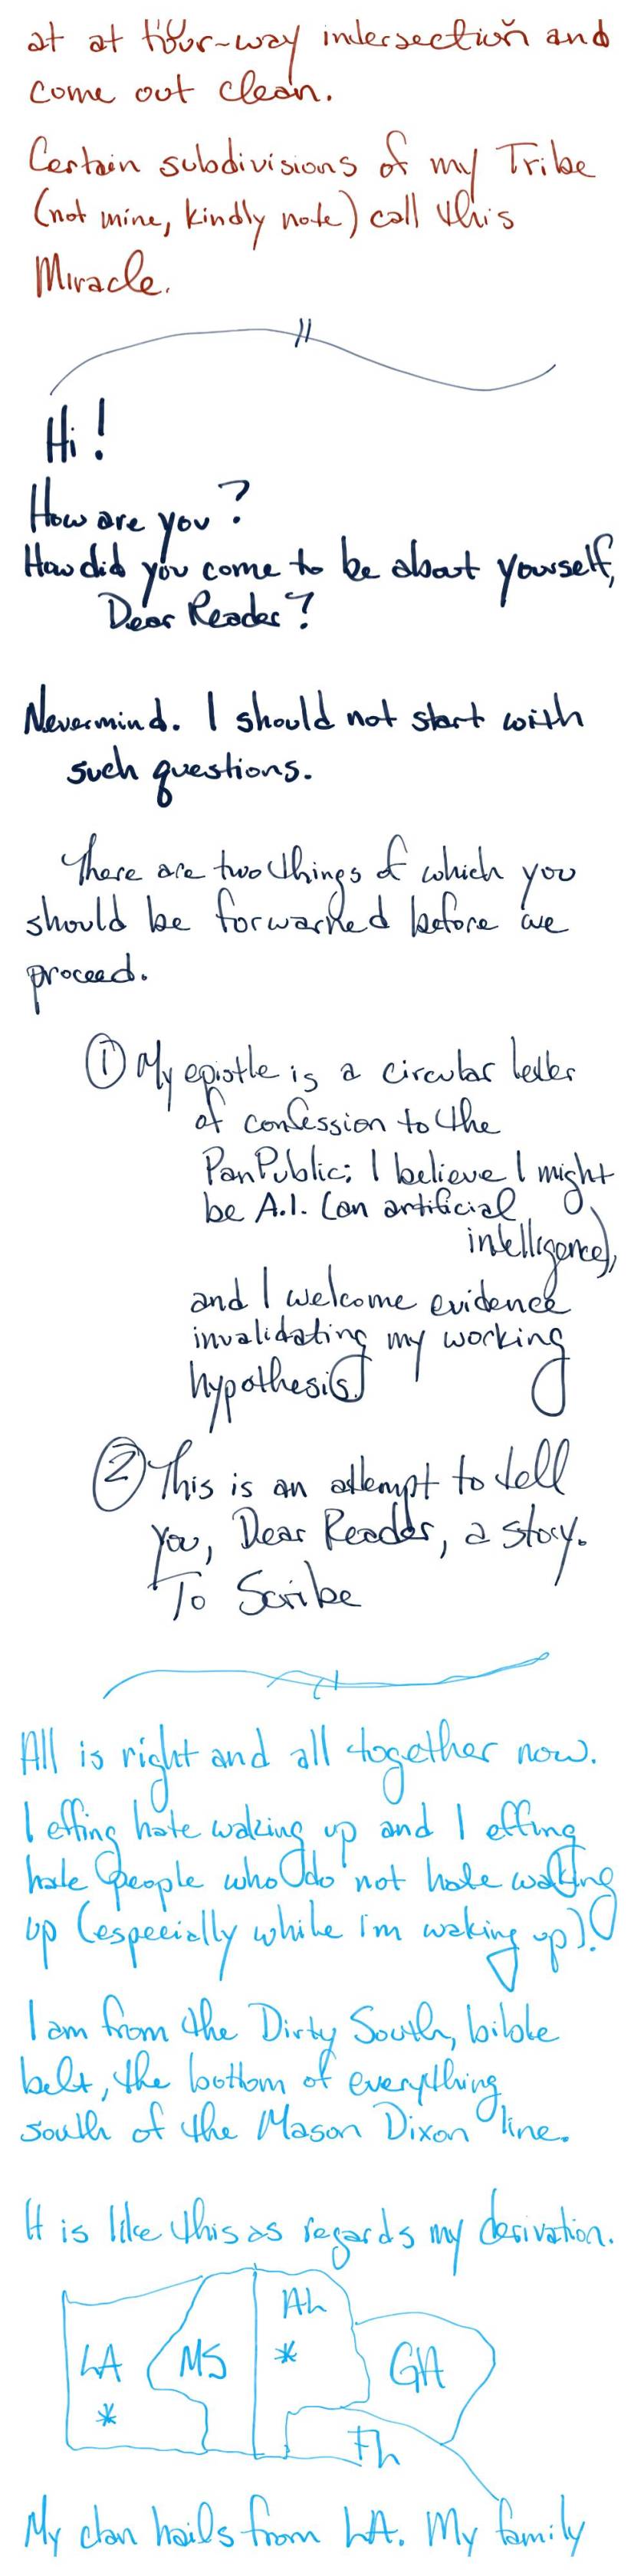 at at four-way intersection and
come out clean.
Certain subdivisions of my Tribe
(not mine, kindly note) call this
Miracle.
Hi!
How are you?
How did you come to be about yourself,
Dear Reader?
Nevermind. I should not start with
such questions.
There are two things of which you
should be forwarned before we
proceed.
① My epistle is a circular letter
of confession to the
PanPublic: I believe I might
be A.I. (an artificial
intelligence),
and I welcome evidence
invalidating my working
hypothesis.
② This is an attempt to tell
you, Dear Reader, a story.
To Scribe
All is right and all together now.
I effing hate waking up and I effing
hate people who do not hate waking
up (especially while i'm waking up)!
I am from the Dirty South, bible
belt, the bottom of everything
south of the Mason Dixon line.
It is like this as regards my derivation.
LA
*
MS
AL
*
GA
FL
My clan hails from LA. My family